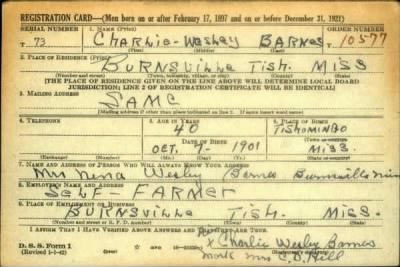 REGISTRATION CARD—(Men born on or after February 17, 1897 and on or before December 31, 1921)
SERIAL NUMBER 1. NAME (Print) ORDER NUMBER
T 73 CHARLIE-Wesley BARNES T 10577
(First) (Middle) (Last)
2. PLACE OF RESIDENCE (Print)
BURNSVILLE TISH. MISS
(Number and street) (Town, township, village, or city) (County) (State)
[THE PLACE OF RESIDENCE GIVEN ON THE LINE ABOVE WILL DETERMINE LOCAL BOARD
JURISDICTION; LINE 2 OF REGISTRATION CERTIFICATE WILL BE IDENTICAL]
3. MAILING ADDRESS
SAME
[Mailing address if other than place indicated on line 2. If same insert word same]
4. TELEPHONE 5. AGE IN YEARS 6. PLACE OF BIRTH
40 TISHOMINGO
DATE OF BIRTH (Town or county)
OCT. 9- 1901 MISS.
(Exchange) (Number) (Mo.) (Day) (Yr.) (State or country)
7. NAME AND ADDRESS OF PERSON WHO WILL ALWAYS KNOW YOUR ADDRESS
Mrs Nena Wesley Barnes Burnsville Miss
8. EMPLOYER'S NAME AND ADDRESS
SELF- FARMER
9. PLACE OF EMPLOYMENT OR BUSINESS
BURNSVILLE TISH. MISS.
(Number and street or R. F. D. number) (Town) (County) (State)
I AFFIRM THAT I HAVE VERIFIED ABOVE ANSWERS AND THAT THEY ARE TRUE.
D. S. S. Form 1
(Revised 1-1-42) (over)
x Charlie Wesley Barnes
mark Mrs C.B. Hill